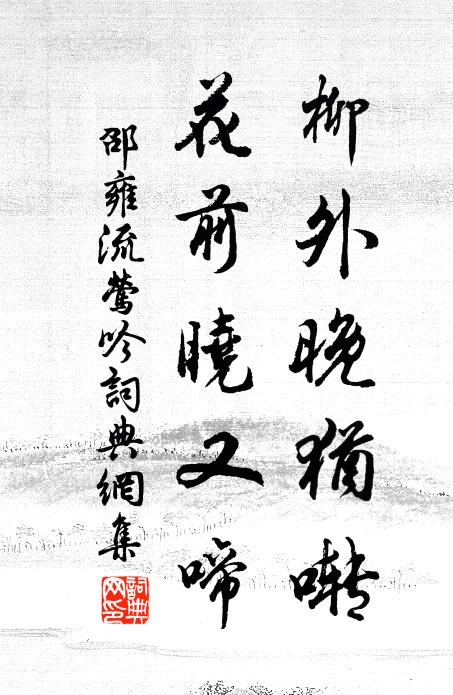 柳外晚猶囀
花前曉又啼
邵雍流鶯吟詞典網集
詞典網印